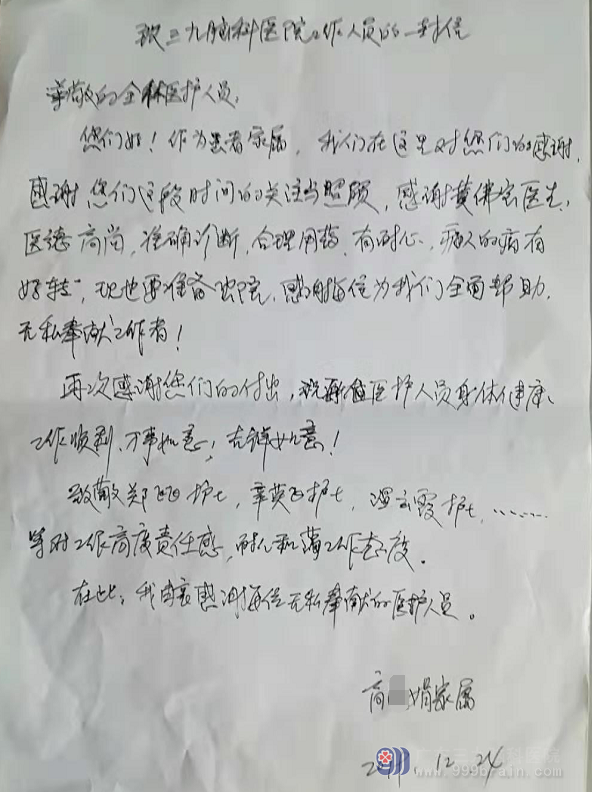 致三九脑科医院工作人员的一封信
尊敬的全体医护人员,
您们好！作为患者家属，我们在这里对您们的感谢,
感谢您们这段时间的关注与照顾，感谢黄佛宏医生,
医德高尚，准确诊断，合理用药，有耐心，病人的病有
好转，现也要准备出院，感谢每位为我们全面帮助，
无私奉献工作者！
再次感谢您们的付出，祝每位医护人员身体健康、
工作顺利、万事如意，吉祥如意！
致敬郑飞飞护士，辛英飞护士，谭云霞护士，……
等对工作高度责任感，耐心和蔼工作态度。
在此，我由衷感谢每位无私奉献的医护人员。
高 娟家属
12.24
www.999brain.com